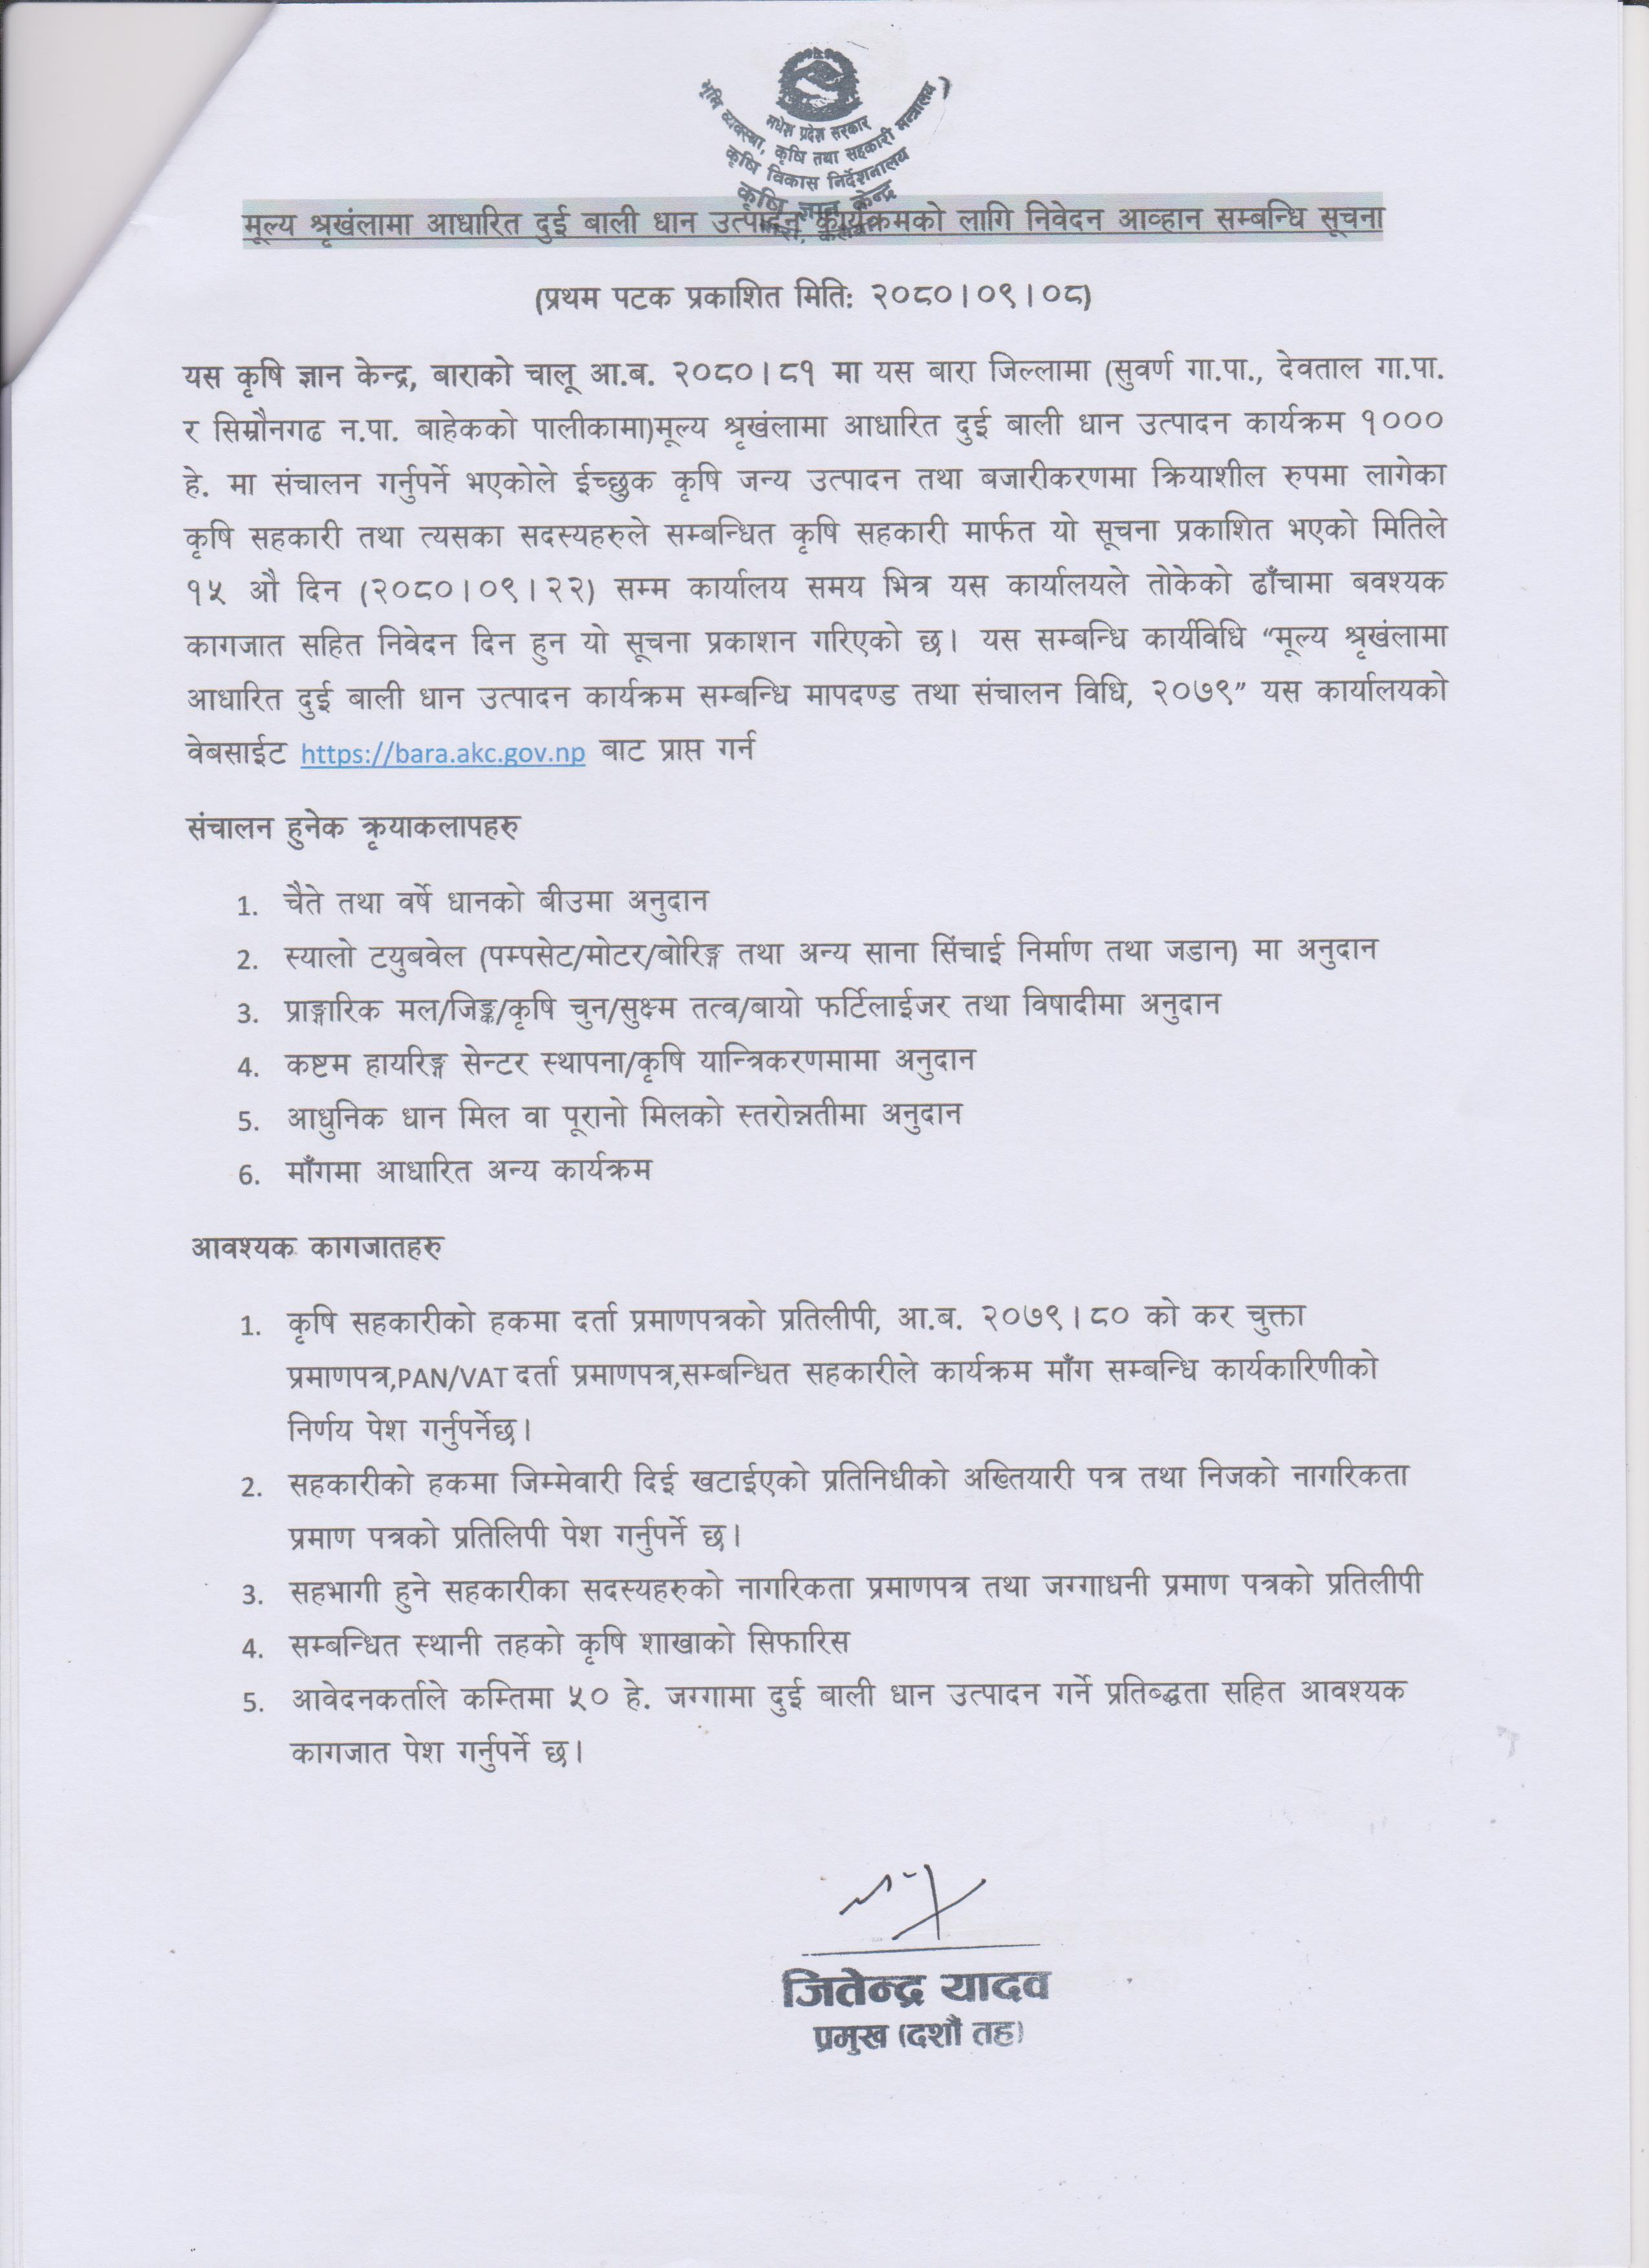 मधेश प्रदेश सरकार
भूमि व्यवस्था, कृषि तथा सहकारी मन्त्रालय
कृषि विकास निर्देशनालय
कृषि ज्ञान केन्द्र
मूल्य श्रृखंलामा आधारित दुई बाली धान उत्पादन कार्यक्रमको लागि निवेदन आव्हान सम्बन्धि सूचना
(प्रथम पटक प्रकाशित मिति: २०८०।०९।०८)
यस कृषि ज्ञान केन्द्र, बाराको चालू आ.ब. २०८०।८१ मा यस बारा जिल्लामा (सुवर्ण गा.पा., देवताल गा.पा.
र सिम्रौनगढ न.पा. बाहेकको पालीकामा)मूल्य श्रृखंलामा आधारित दुई बाली धान उत्पादन कार्यक्रम १०००
हे. मा संचालन गर्नुपर्ने भएकोले ईच्छुक कृषि जन्य उत्पादन तथा बजारीकरणमा क्रियाशील रुपमा लागेका
कृषि सहकारी तथा त्यसका सदस्यहरुले सम्बन्धित कृषि सहकारी मार्फत यो सूचना प्रकाशित भएको मितिले
१५ औ दिन (२०८०।०९।२२) सम्म कार्यालय समय भित्र यस कार्यालयले तोकेको ढाँचामा बवश्यक
कागजात सहित निवेदन दिन हुन यो सूचना प्रकाशन गरिएको छ। यस सम्बन्धि कार्यविधि “मूल्य श्रृखंलामा
आधारित दुई बाली धान उत्पादन कार्यक्रम सम्बन्धि मापदण्ड तथा संचालन विधि, २०७९” यस कार्यालयको
वेबसाईट https://bara.akc.gov.np बाट प्राप्त गर्न
संचालन हुनेक क्रृयाकलापहरु
1. चैते तथा वर्षे धानको बीउमा अनुदान
2. स्यालो टयुबवेल (पम्पसेट/मोटर/बोरिङ्ग तथा अन्य साना सिंचाई निर्माण तथा जडान) मा अनुदान
3. प्राङ्गारिक मल/जिङ्क/कृषि चुन/सुक्ष्म तत्व/बायो फर्टिलाईजर तथा विषादीमा अनुदान
4. कष्टम हायरिङ्ग सेन्टर स्थापना/कृषि यान्त्रिकरणमामा अनुदान
5. आधुनिक धान मिल वा पूरानो मिलको स्तरोन्नतीमा अनुदान
6. माँगमा आधारित अन्य कार्यक्रम
आवश्यक कागजातहरु
1. कृषि सहकारीको हकमा दर्ता प्रमाणपत्रको प्रतिलीपी, आ.ब. २०७९।८० को कर चुक्ता
प्रमाणपत्र,PAN/VAT दर्ता प्रमाणपत्र,सम्बन्धित सहकारीले कार्यक्रम माँग सम्बन्धि कार्यकारिणीको
निर्णय पेश गर्नुपर्नेछ।
2. सहकारीको हकमा जिम्मेवारी दिई खटाईएको प्रतिनिधीको अख्तियारी पत्र तथा निजको नागरिकता
प्रमाण पत्रको प्रतिलिपी पेश गर्नुपर्ने छ।
3. सहभागी हुने सहकारीका सदस्यहरुको नागरिकता प्रमाणपत्र तथा जग्गाधनी प्रमाण पत्रको प्रतिलीपी
4. सम्बन्धित स्थानी तहको कृषि शाखाको सिफारिस
5. आवेदनकर्ताले कम्तिमा ५० हे. जग्गामा दुई बाली धान उत्पादन गर्ने प्रतिब्द्धता सहित आवश्यक
कागजात पेश गर्नुपर्ने छ।
जितेन्द्र यादव
प्रमुख (दशौं तह)